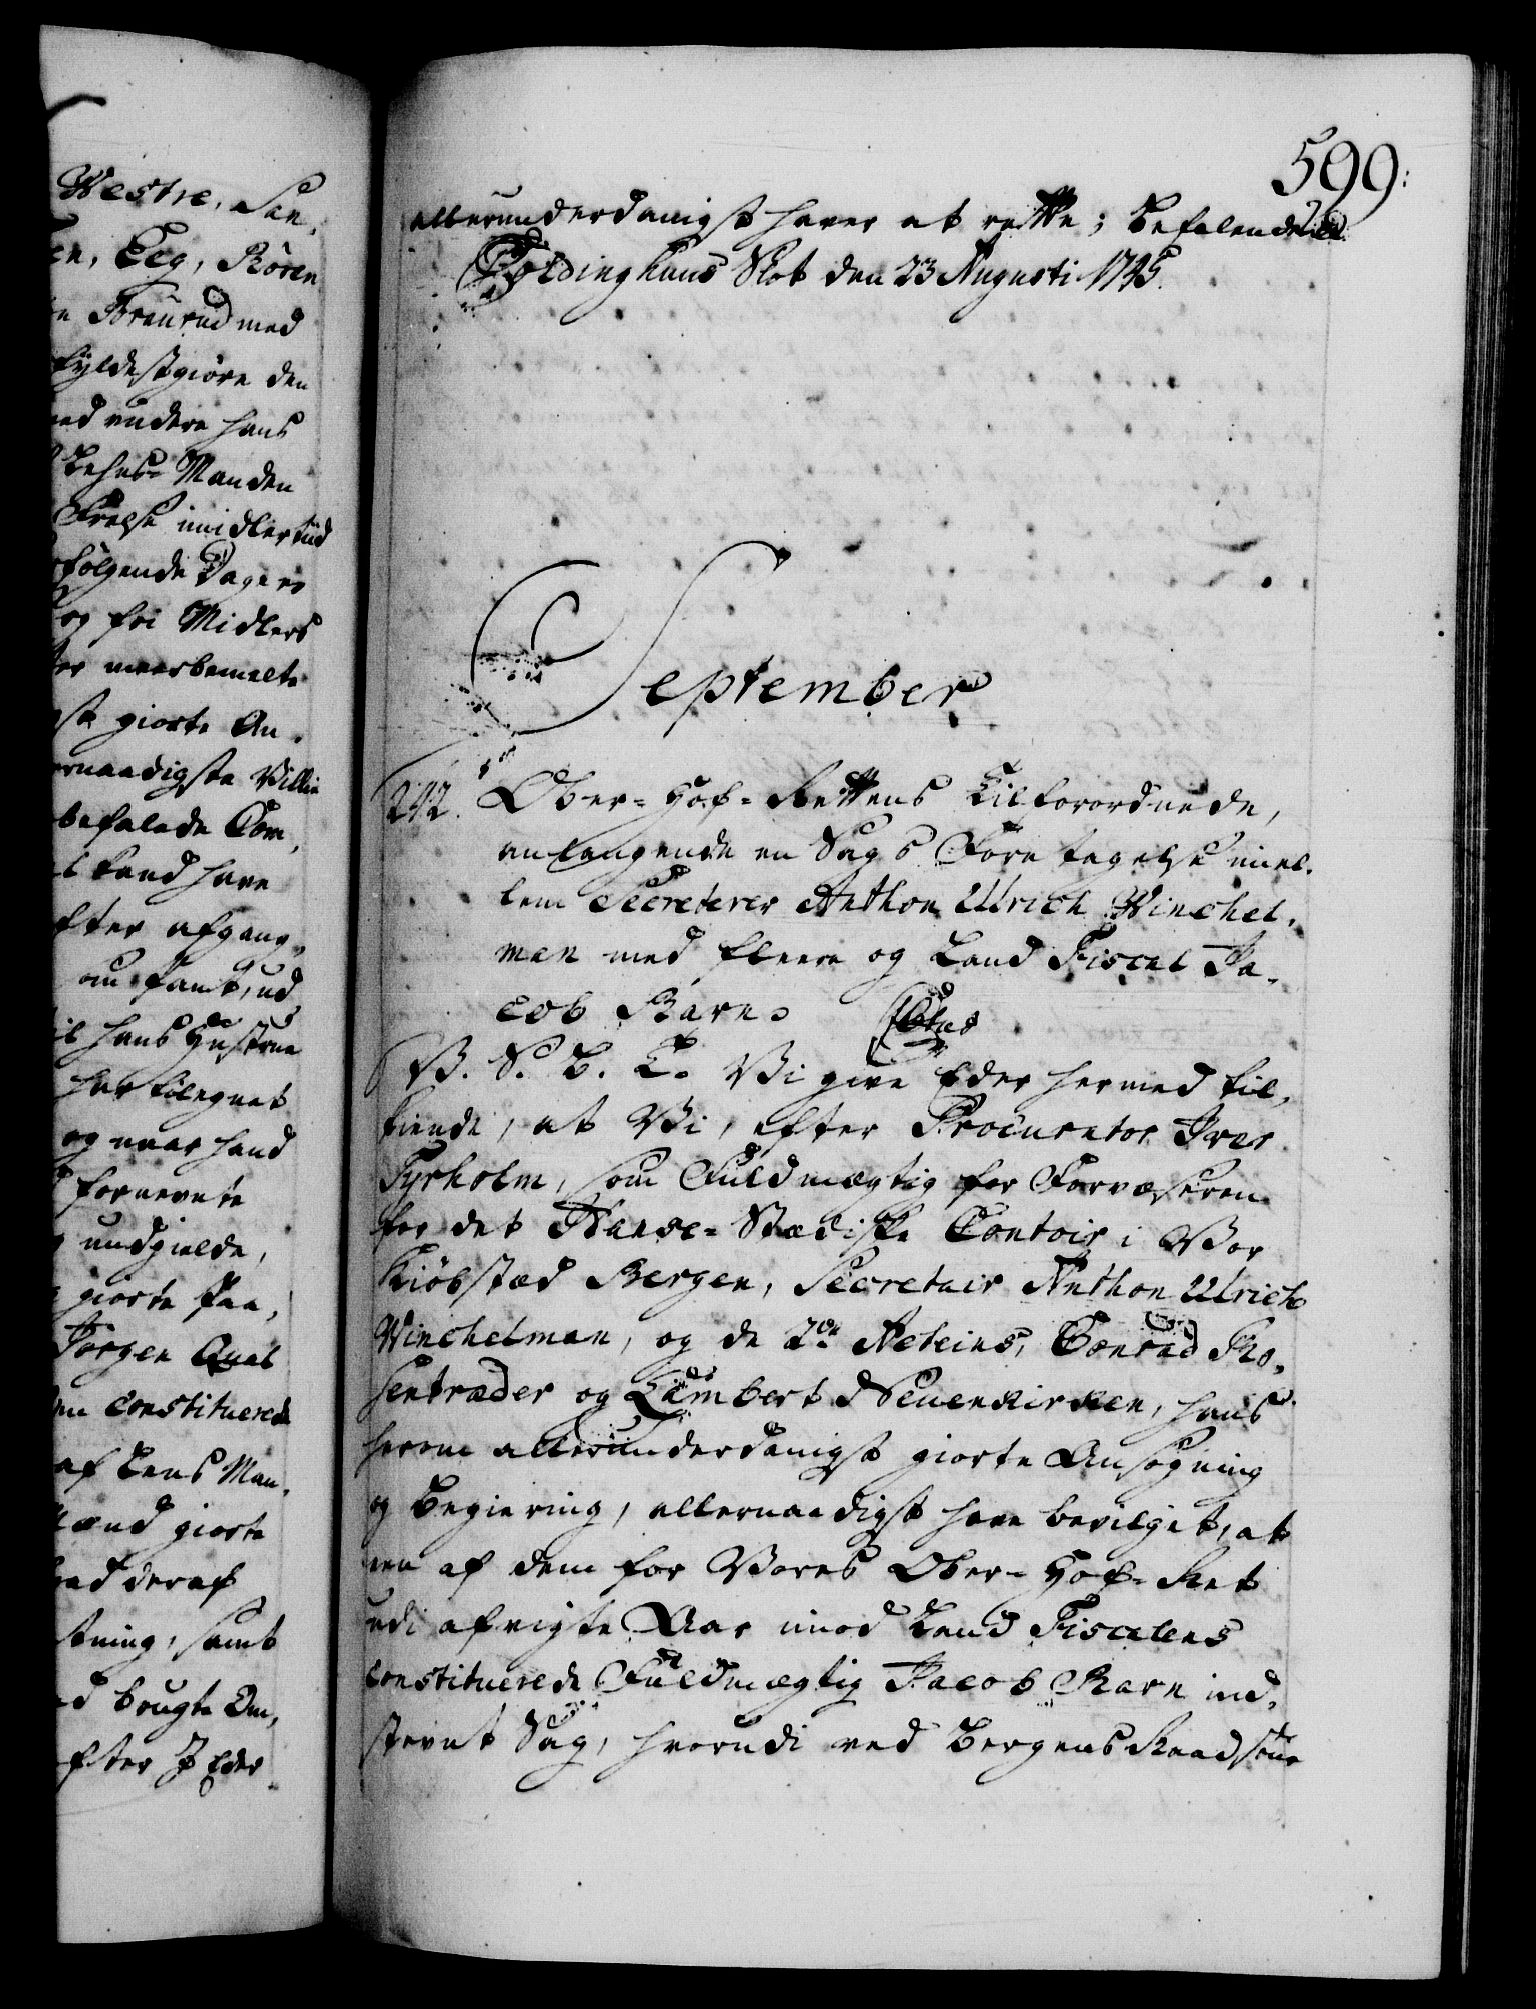 Westre, San,
en, Eeg, Rören
e Braurud med
fyldestgiøre den
ned andere hans
Lehns-Manden
Frelse imidlertiid
følgende Dage er
og foi Midlers
ter meerbemelte
st giorte An,
ernaadigste Villie
befalede Com,
l Land have
efter afgang,
om samt, ud,
il hans Hustrue
har tilegnet
og naar hand
fornevnte
undgielde,
giorte Paa,
Jørgen Qual
en constituerede
af Lens Man,
Lænd giorte
hed deraf
stning, samt
d brugte Om,
efter I Eder
599:
allerunderdanigst haver at rette; Befalendes etc.
Coldinghuus Slot den 23 Augusti 1745.
September
242. Ober-Hof-Rettens Tilforordnede,
anlangende en Sags Foretagelse imel,
lem Secreterer Anthon Ulrich Winchel,
man med fleere og Land Fiscal Ja,
cob Ravn.
V. S. B. T. Vi give Eder hermed til,
kiende, at Vi, efter Procurator Iver
Tyrholm, som Fuldmægtig for Forvæseren
for det Hanse-Stædiske Contoir i Vor
Kiöbstæd Bergen, Secretair Anthon Ulrich
Winchelman, og de 2de Achteins, Conrad Ro,
sentræder og Lambert Neuenkirken, hans
herom allerunderdanigst giorte Ansøgning
og Begiering, allernaadigst have bevilget, at
en af dem for Vores Ober-Hof-Ret
udi afvigte Aar imod Land Fiscalens
constituerede Fuldmægtig Jacob Ravn ind,
stevnt Sag, hvorudi ved Bergens Raadstue